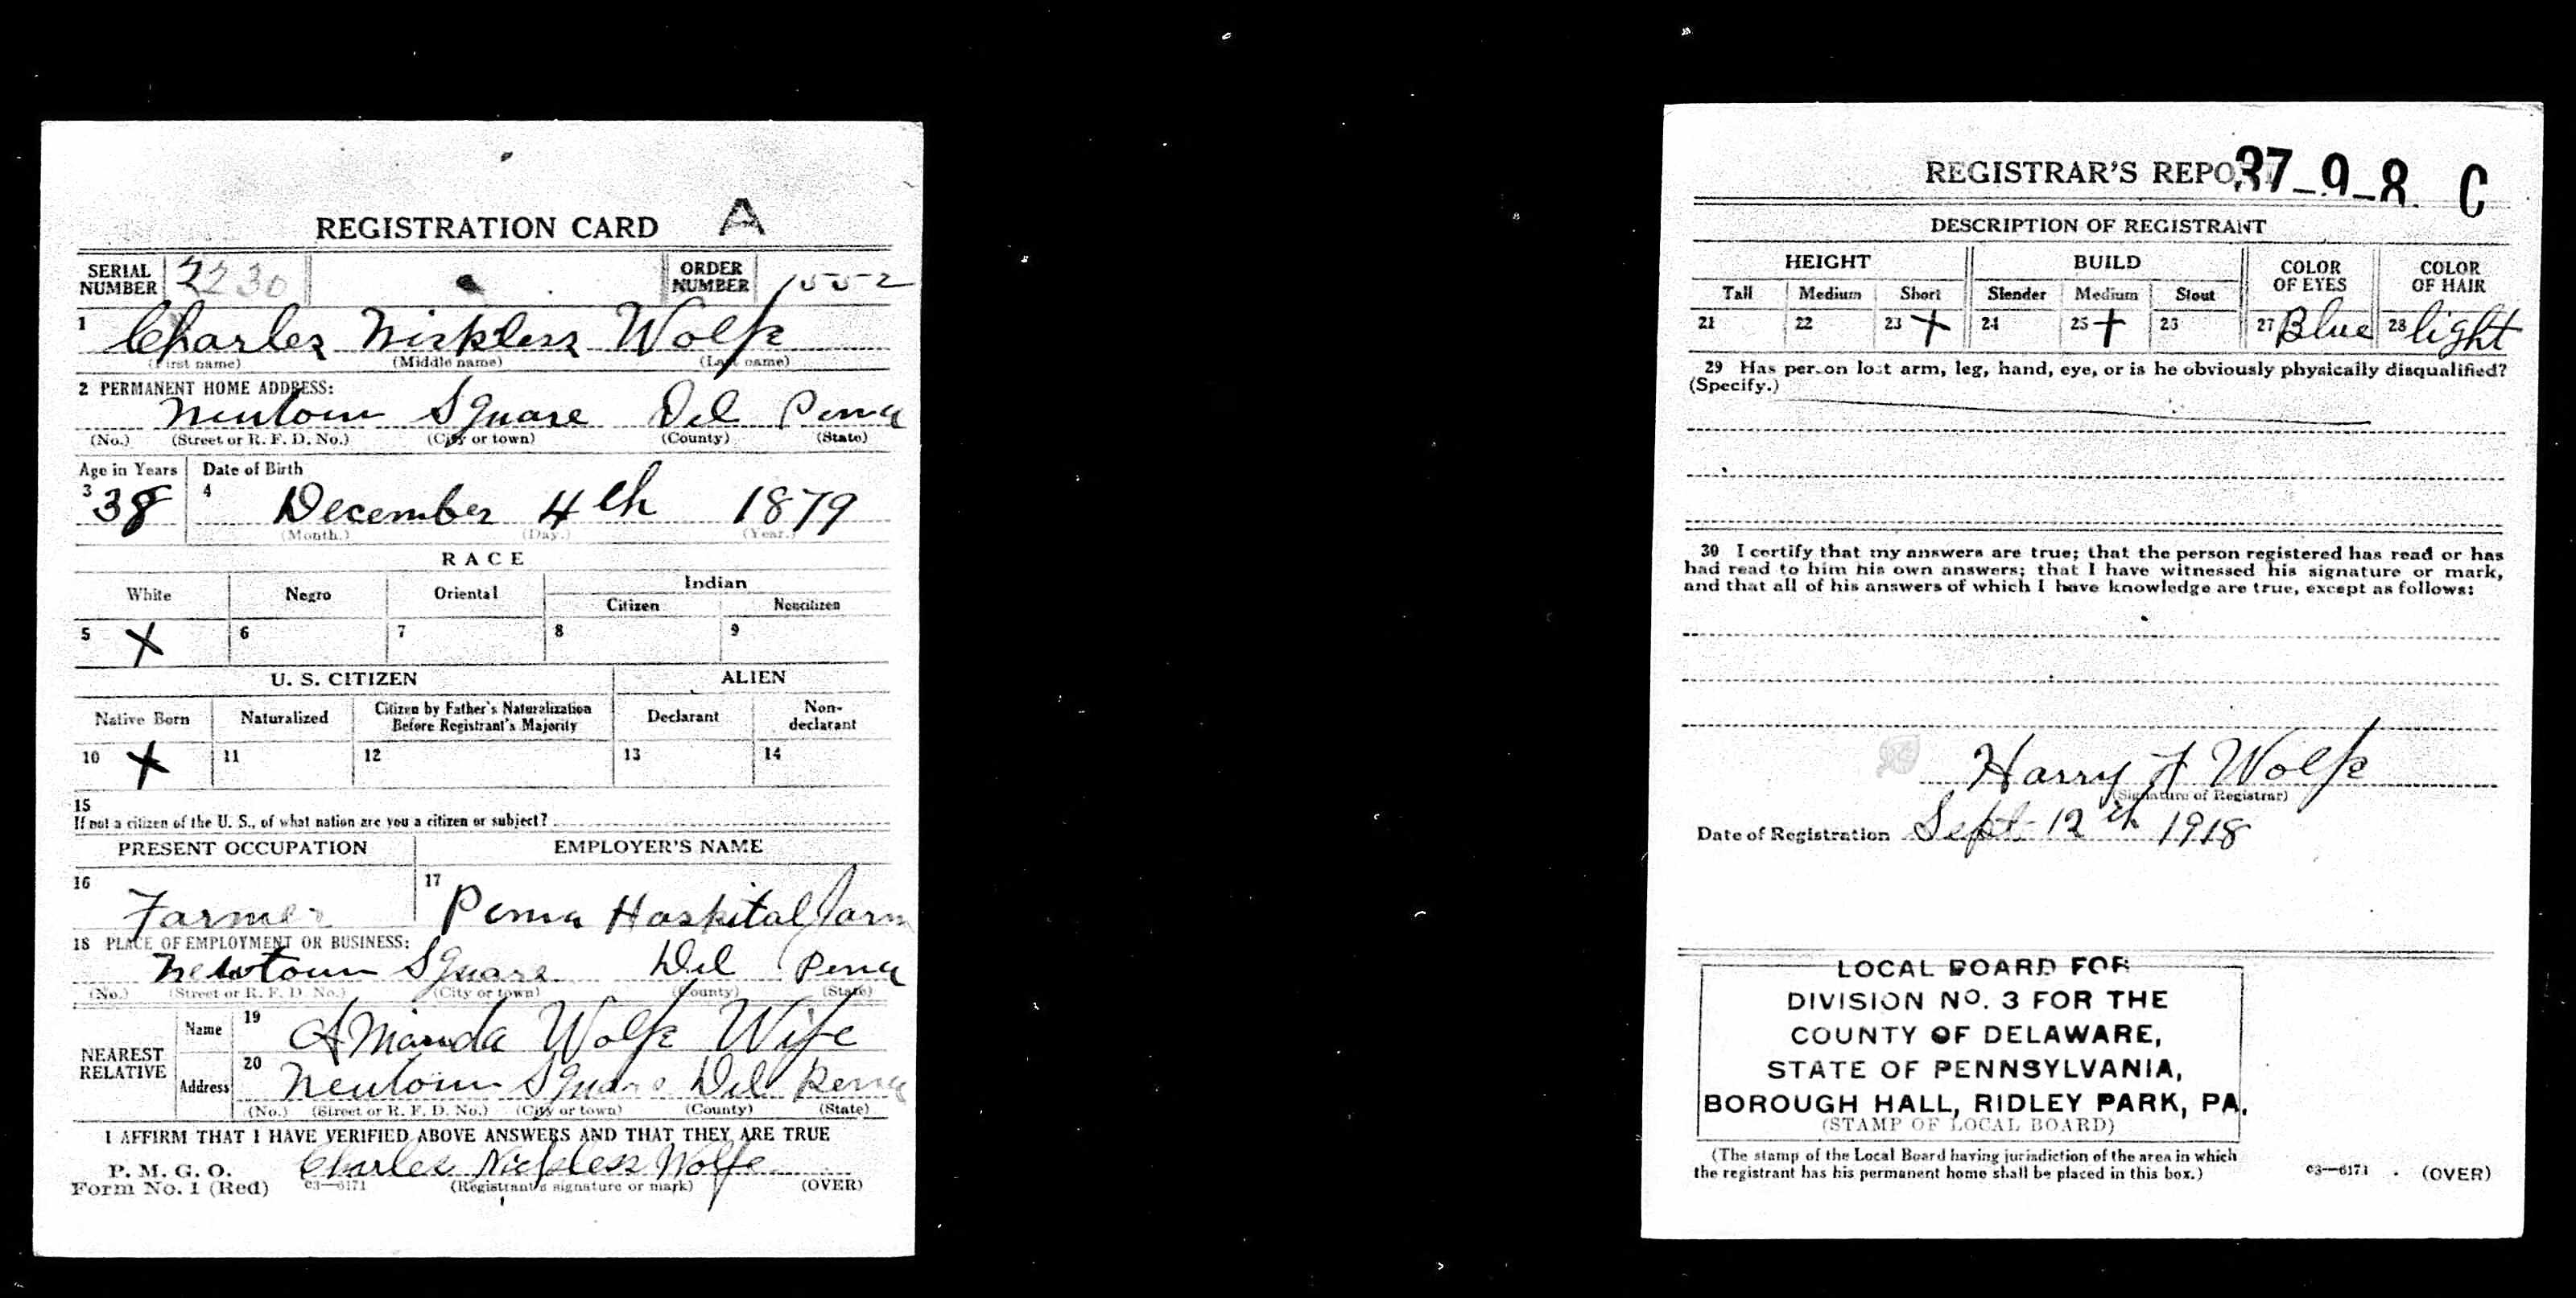 REGISTRATION CARD A
SERIAL NUMBER 2230 ORDER NUMBER 1552
1 Charles Nickless Wolfe
(First name) (Middle name) (Last name)
2 PERMANENT HOME ADDRESS:
Newtown Square Del Penna
(No.) (Street or R. F. D. No.) (City or town) (County) (State)
Age in Years Date of Birth
3 38 4 December 4th 1879
(Month.) (Day.) (Year.)
RACE
White Negro Oriental Indian
Citizen Noncitizen
5 X 6 7 8 9
U. S. CITIZEN ALIEN
Native Born Naturalized Citizen by Father's Naturalization Before Registrant's Majority Declarant Non-declarant
10 X 11 12 13 14
15
If not a citizen of the U. S., of what nation are you a citizen or subject?
PRESENT OCCUPATION EMPLOYER'S NAME
16 Farmer 17 Penna Hospital farm
18 PLACE OF EMPLOYMENT OR BUSINESS:
Newtown Square Del Penna
(No.) (Street or R. F. D. No.) (City or town) (County) (State)
NEAREST RELATIVE Name 19 Amanda Wolfe Wife
Address 20 Newtown Square Del Penna
(No.) (Street or R. F. D. No.) (City or town) (County) (State)
I AFFIRM THAT I HAVE VERIFIED ABOVE ANSWERS AND THAT THEY ARE TRUE
P. M. G. O.
Form No. 1 (Red) Charles Nickless Wolfe
03—6171 (Registrant's signature or mark) (OVER)
REGISTRAR'S REPORT 37-9-8 C
DESCRIPTION OF REGISTRANT
HEIGHT BUILD COLOR OF EYES COLOR OF HAIR
Tall Medium Short Slender Medium Stout
21 22 23 X 24 25 X 26 27 Blue 28 light
29 Has person lost arm, leg, hand, eye, or is he obviously physically disqualified?
(Specify.)
30 I certify that my answers are true; that the person registered has read or has
had read to him his own answers; that I have witnessed his signature or mark,
and that all of his answers of which I have knowledge are true, except as follows:
Harry F Wolfe
(Signature of Registrar)
Date of Registration Sept 12th 1918
LOCAL BOARD FOR
DIVISION NO. 3 FOR THE
COUNTY OF DELAWARE,
STATE OF PENNSYLVANIA,
BOROUGH HALL, RIDLEY PARK, PA.
(STAMP OF LOCAL BOARD)
(The stamp of the Local Board having jurisdiction of the area in which
the registrant has his permanent home shall be placed in this box.)
03—6171 (OVER)